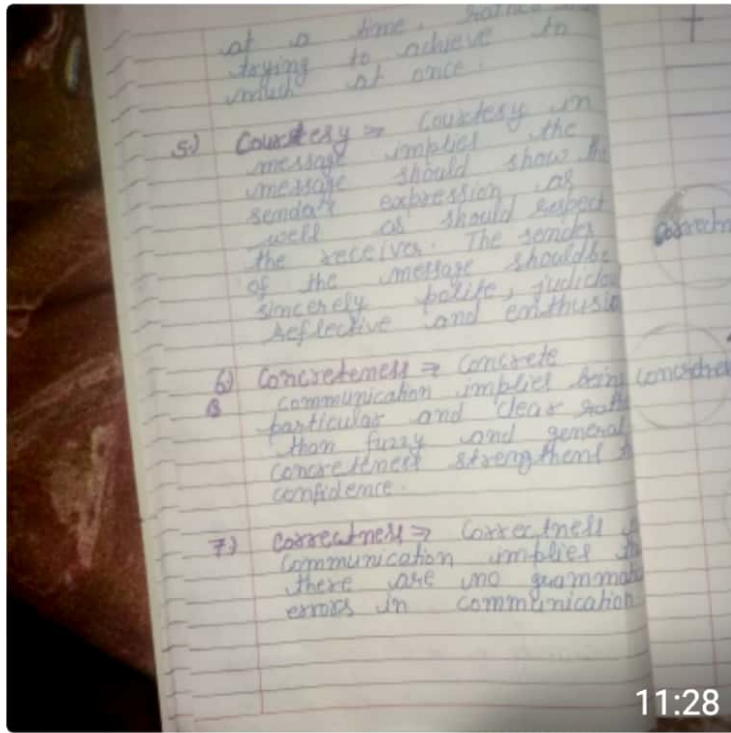 at a time, rather
trying to achieve to
much at once.
5.) Courtesy ⇒ Courtesy in
message implies the
message should show the
sendar expression as
well as should respect
the receiver. The sender
of the message should be
sincerely polite, judicio
reflective and enthusia
6) Concreteness ⇒ Concrete
communication implies being
particular and clear rath
than fuzzy and general
concreteness strengthens
confidence.
7) Correctness ⇒ Correctness
communication implies th
there are no grammat
errors in communication
Correctn
concrete
11:28